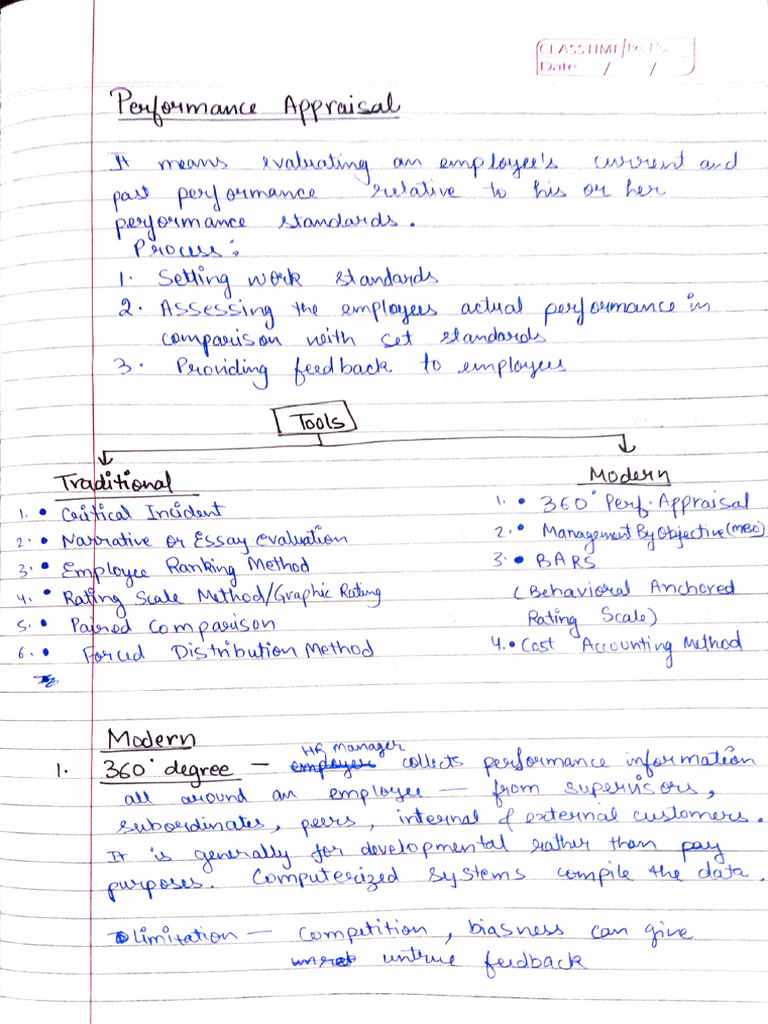 Date / /
Performance Appraisal
It means evaluating an employee's current and
past performance relative to his or her
performance standards.
Process:
1. Setting work standards
2. Assessing the employees actual performance in
comparison with set standards
3. Providing feedback to employees
Tools
Traditional
1. • Critical Incident
2. • Narrative or Essay Evaluation
3. • Employee Ranking Method
4. • Rating Scale Method/Graphic Rating
5. • Paired Comparison
6. • Forced Distribution Method
Modern
1. • 360° Perf. Appraisal
2. • Management By Objective (MBO)
3. • BARS
(Behavioral Anchored
Rating Scale)
4. • Cost Accounting Method
Modern
HR manager
1. 360° degree — employer collects performance information
all around an employee — from supervisors,
subordinates, peers, internal & external customers.
It is generally for developmental rather than pay
purposes. Computerized systems compile the data.
Limitation — Competition, biasness can give
untrue feedback